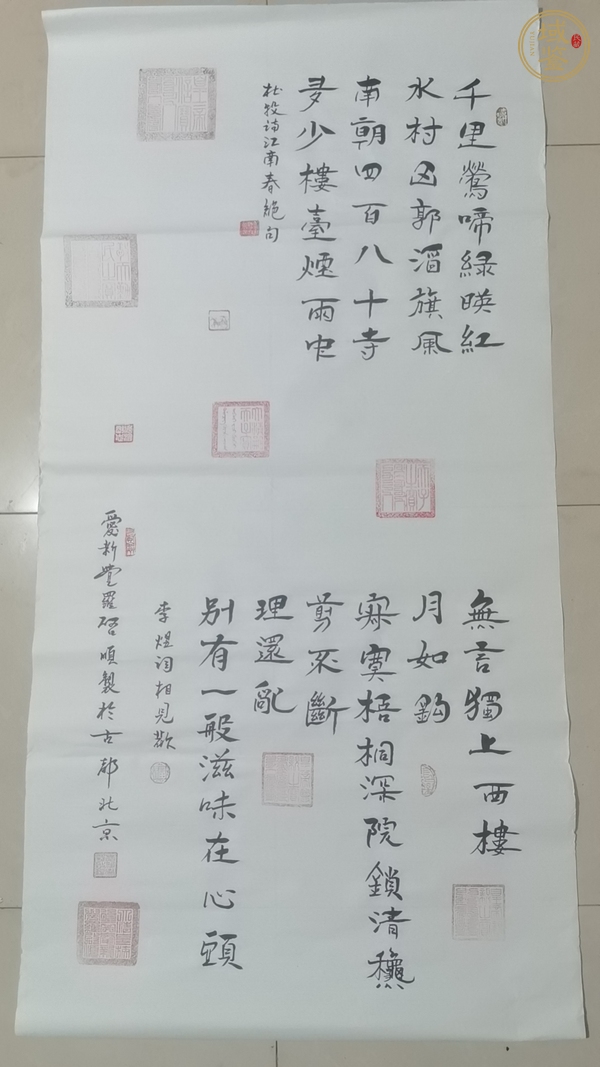 千里鶯啼綠暎紅
水村山郭酒旗風
南朝四百八十寺
多少樓臺煙雨中
杜牧诗江南春絶句
無言獨上西樓
月如鈎
寂寞梧桐深院鎖清龝
剪不斷
理還亂
别有一般滋味在心頭
李煜詞相見歡
愛新覺羅啓順製於古都北京